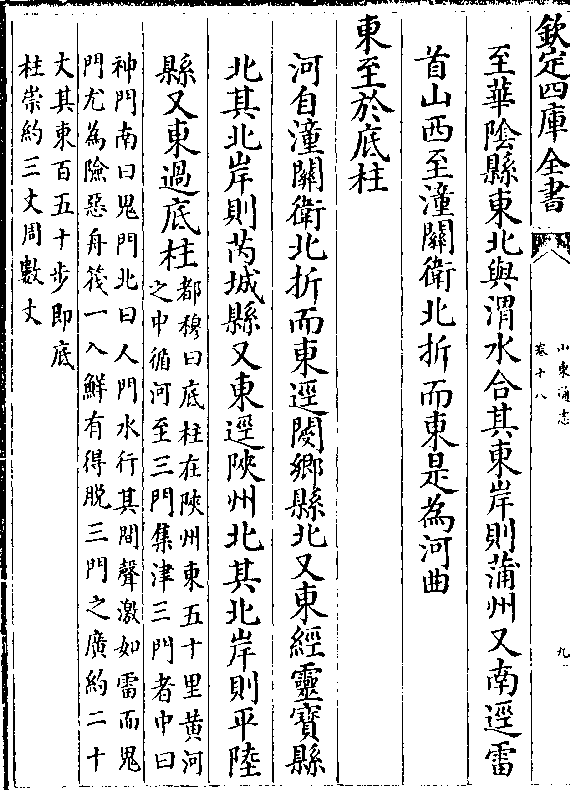 欽定四庫全書
山東通志
卷十八
九
至華陰縣東北與渭水合其東岸則蒲州又南逕雷
首山西至潼關衛北折而東是為河曲
東至於底柱
河自潼關衛北折而東逕閿鄉縣北又東經靈寶縣
北其北岸則芮城縣又東逕陝州北其北岸則平陸
縣又東過底柱
都穆曰底柱在陝州東五十里黄河
之中循河至三門集津三門者中曰
神門南曰鬼門北曰人門水行其間聲激如雷而鬼
門尤為險惡舟筏一入鮮有得脱三門之廣約二十
丈其東百五十步即底
柱崇約三丈周數丈